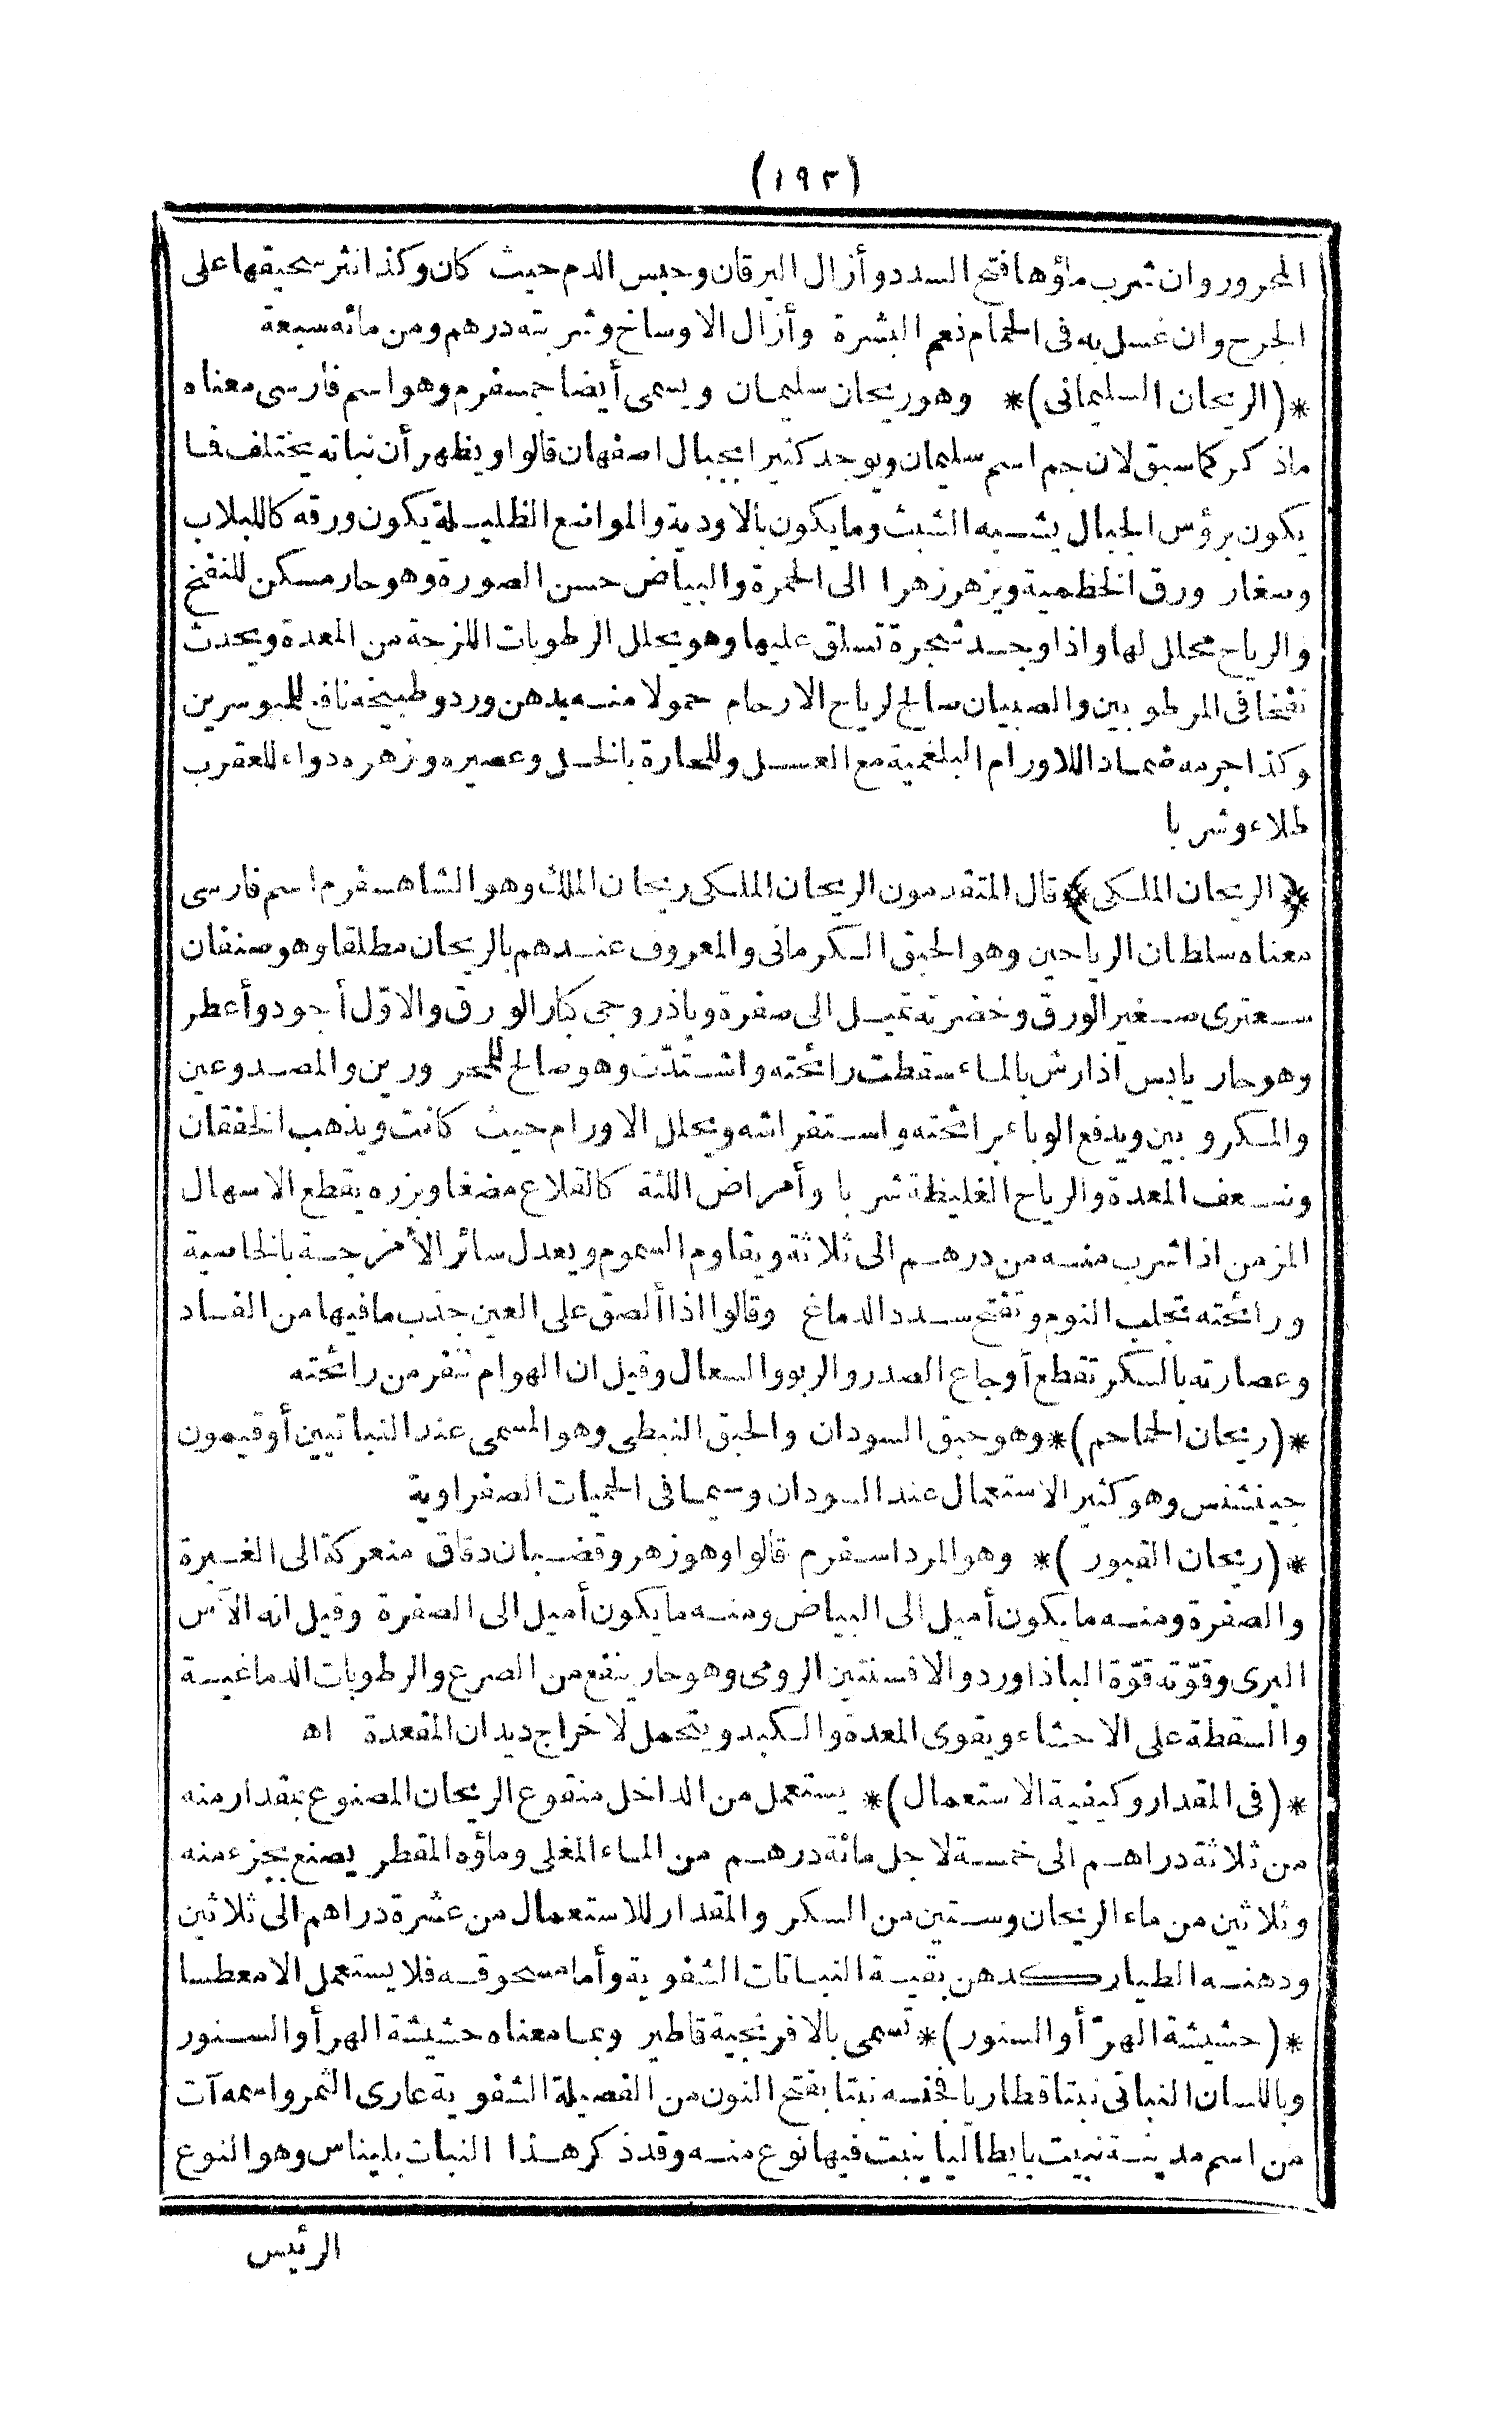 (١٩٢)
المحرور وان شرب ماؤها فتح السدد وأزال اليرقان وحبس الدم حيث كان وكذا نثر سحيقها على
الجرح وان غسل به فى الحمام نعم البشرة وأزال الاوساخ وشربته درهم ومن مائه سبعة
*(الريحان السليمانى)* وهو ريحان سليمان ويسمى أيضا جمسفرم وهو اسم فارسى معناه
ماذكر كما سبق لان جم اسم سليمان ويوجد كثيرا بجبال اصفهان قالوا ويظهر أن نباته يختلف فما
يكون برؤس الجبال يشبه الشبث وما يكون بالاودية والمواضع الظليلة يكون ورقه كاللبلاب
وصغار ورق الخطمية ويزهر زهرا الى الحمرة والبياض حسن الصورة وهو حار مسكن للنفخ
والرياح محلل لها واذا وجد شجرة تسلق عليها وهو يحلل الرطوبات اللزجة من المعدة ويحدث
نفخا فى المرطوبين والصبيان صالح لرياح الارحام حمولا منه بدهن ورد وطبيخه نافع للبوسرين
وكذا جرمه ضمادا للاورام البلغمية مع العسل وللحارة بالخل وعصيره وزهره دواء للعقرب
طلاء وشربا
﴿الريحان الملكى﴾ قال المتقدمون الريحان الملكى ريحان الملك وهو الشاهسفرم اسم فارسى
معناه سلطان الرياحين وهو الحبق الكرمانى والمعروف عندهم بالريحان مطلقا وهو صنفان
سعترى صغير الورق وخضرته تميل الى صفرة وباذروجى كبار الورق والاوّل أجود وأعطر
وهو حار يابس اذا رش بالماء سقطت رائحته واشتدّت وهو صالح للمحرورين والمصدوعين
والمكروبين ويدفع الوباء برائحته واستفراشه ويحلل الاورام حيث كانت ويذهب الخفقان
وضعف المعدة والرياح الغليظة شربا وأمراض اللثة كالقلاع مضغا وبزره يقطع الاسهال
المزمن اذا شرب منه من درهم الى ثلاثة ويقاوم السموم ويعدل سائر الأمزجة بالخاصية
ورائحته تجلب النوم وتفتح سدد الدماغ وقالوا اذا ألصق على العين جذب مافيها من الفساد
وعصارته بالسكر تقطع أوجاع الصدر والربو والسعال وقيل ان الهوام تنفر من رائحته
*(ريحان الحماحم)* وهو حبق السودان والحبق النبطى وهو المسمى عند النباتيين أوقيمون
جينشنس وهو كثير الاستعمال عند السودان وسيما فى الحميات الصفراوية
*(ريحان القبور)* وهو المرداسفرم قالوا وهو زهر وقضبان دقاق منعركة الى الغبرة
والصفرة ومنه مايكون أميل الى البياض ومنه مايكون أميل الى الصفرة وقيل انه الآس
البرى وقوّته قوّة الباذاورد والافسنتين الرومى وهو حار ينفع من الصرع والرطوبات الدماغية
والسقطة على الاحشاء ويقوى المعدة والكبد ويتحمل لاخراج ديدان المقعدة اه
*(فى المقدار وكيفية الاستعمال)* يستعمل من الداخل منقوع الريحان المصنوع بمقدار منه
من ثلاثة دراهم الى خمسة لاجل مائة درهم من الماء المغلى وماؤه المقطر يصنع بجزء منه
وثلاثين من ماء الريحان وستين من السكر والمقدار للاستعمال من عشرة دراهم الى ثلاثين
ودهنه الطيار كدهن بقية النباتات الشفوية وأما مسحوقه فلا يستعمل الا معطسا
*(حشيشة الهرّ أو السنور)* تسمى بالافرنجية قاطير وبما معناه حشيشة الهر أو السنور
وباللسان النباتى نبتا قطاريا فجنسه نبتا بفتح النون من الفصيلة الشفوية عارى الثمر واسمه آت
من اسم مدينة نبيت بايطاليا ينبت فيها نوع منه وقد ذكر هذا النبات بليناس وهو النوع
الرئيس